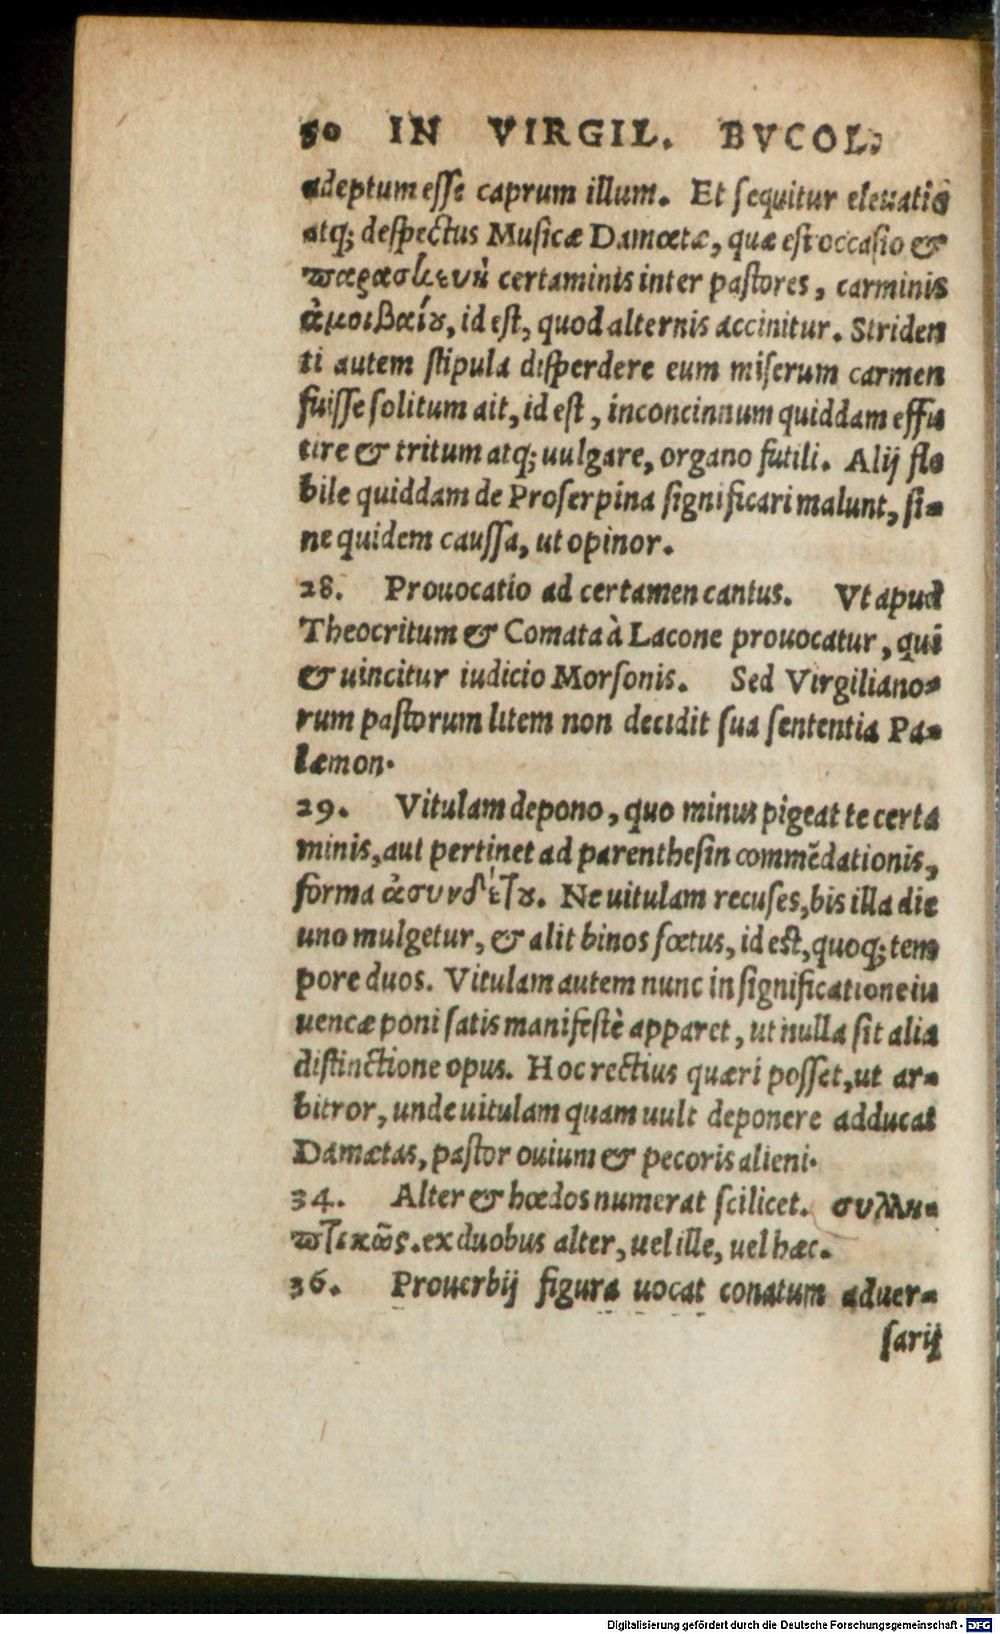 50 IN VIRGIL. BVCOL.
adeptum esse caprum illum. Et sequitur eleuatio
atq; despectus Musicæ Damœtæ, quæ est occasio &
παρασκευὴ certaminis inter pastores, carminis
ἀμοιβαίου, id est, quod alternis accinitur. Striden
ti autem stipula disperdere eum miserum carmen
fuisse solitum ait, id est, inconcinnum quiddam effu
tire & tritum atq; uulgare, organo futili. Alij fle
bile quiddam de Proserpina significari malunt, si-
ne quidem caussa, ut opinor.
28. Prouocatio ad certamen cantus. Vt apud
Theocritum & Comata à Lacone prouocatur, qui
& uincitur iudicio Morsonis. Sed Virgiliano-
rum pastorum litem non decidit sua sententia Pa-
læmon.
29. Vitulam depono, quo minus pigeat te certa
minis, aut pertinet ad parenthesin commẽdationis,
forma ἀσυνδέτου. Ne uitulam recuses, bis illa die
uno mulgetur, & alit binos fœtus, id est, quoq; tem
pore duos. Vitulam autem nunc in significatione iu
uencæ poni satis manifestè apparet, ut nulla sit alia
distinctione opus. Hoc rectius quæri posset, ut ar-
bitror, unde uitulam quam uult deponere adducat
Damætas, pastor ouium & pecoris alieni.
34. Alter & hœdos numerat scilicet. συλλη-
πτικῶς. ex duobus alter, uel ille, uel hæc.
36. Prouerbij figura uocat conatum aduer-
sarij
Digitalisierung gefördert durch die Deutsche Forschungsgemeinschaft - DFG